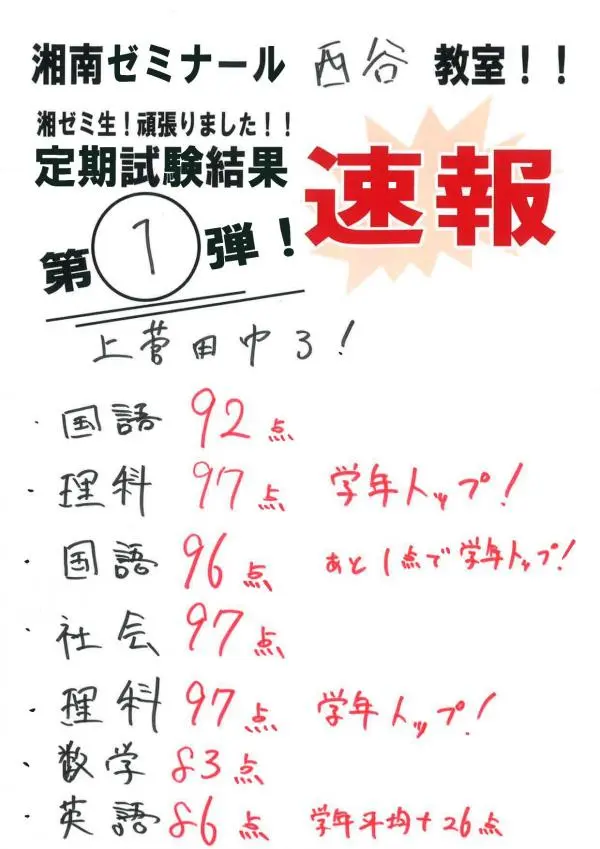 湘南ゼミナール 西谷 教室！！
湘ゼミ生！頑張りました！！
定期試験結果
速報
第1弾！
上菅田中3！
・国語 92点
・理科 97点 学年トップ！
・国語 96点 あと1点で学年トップ！
・社会 97点
・理科 97点 学年トップ！
・数学 83点
・英語 86点 学年平均+26点